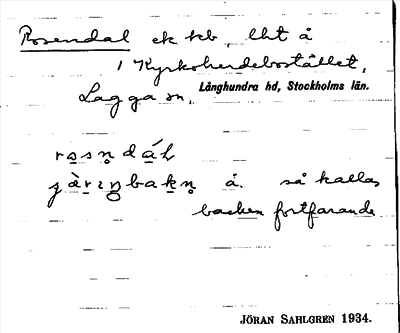 Rosendal ek kb, lht å
1 Kyrkoherdebostället,
Lagga sn, Långhundra hd, Stockholms län.
rosṇdáL
jä̀riŋbakṇ å. så kallas
backen fortfarande
JÖRAN SAHLGREN 1934.